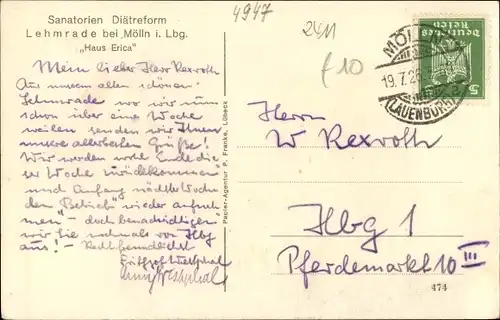 4947
2411
f 10
Sanatorien Diätreform
Lehmrade bei Mölln i. Lbg.
„Haus Erica"
Mein lieber Herr Rexroth
Aus unserem allen schönen
Lehmrade wo wir nun
schon über eine Woche
weilen senden wir Ihnen
unsere allerbesten Grüße!
Wir werden wohl Ende die-
ser Woche zurückkommen
und Anfang nächste Woche
den „Betrieb" wieder aufneh-
men" – doch benachrichtigen
wir Sie nochmals von Hbg
aus! –
Westphal
Westphal
Papier-Agentur P. Franke, Lübeck
Deutsches
Reich
5
MÖLLN
19.7.26
(LAUENBURG)
Herrn
W Rexroth
Hbg 1
Pferdemarkt 10 III
474